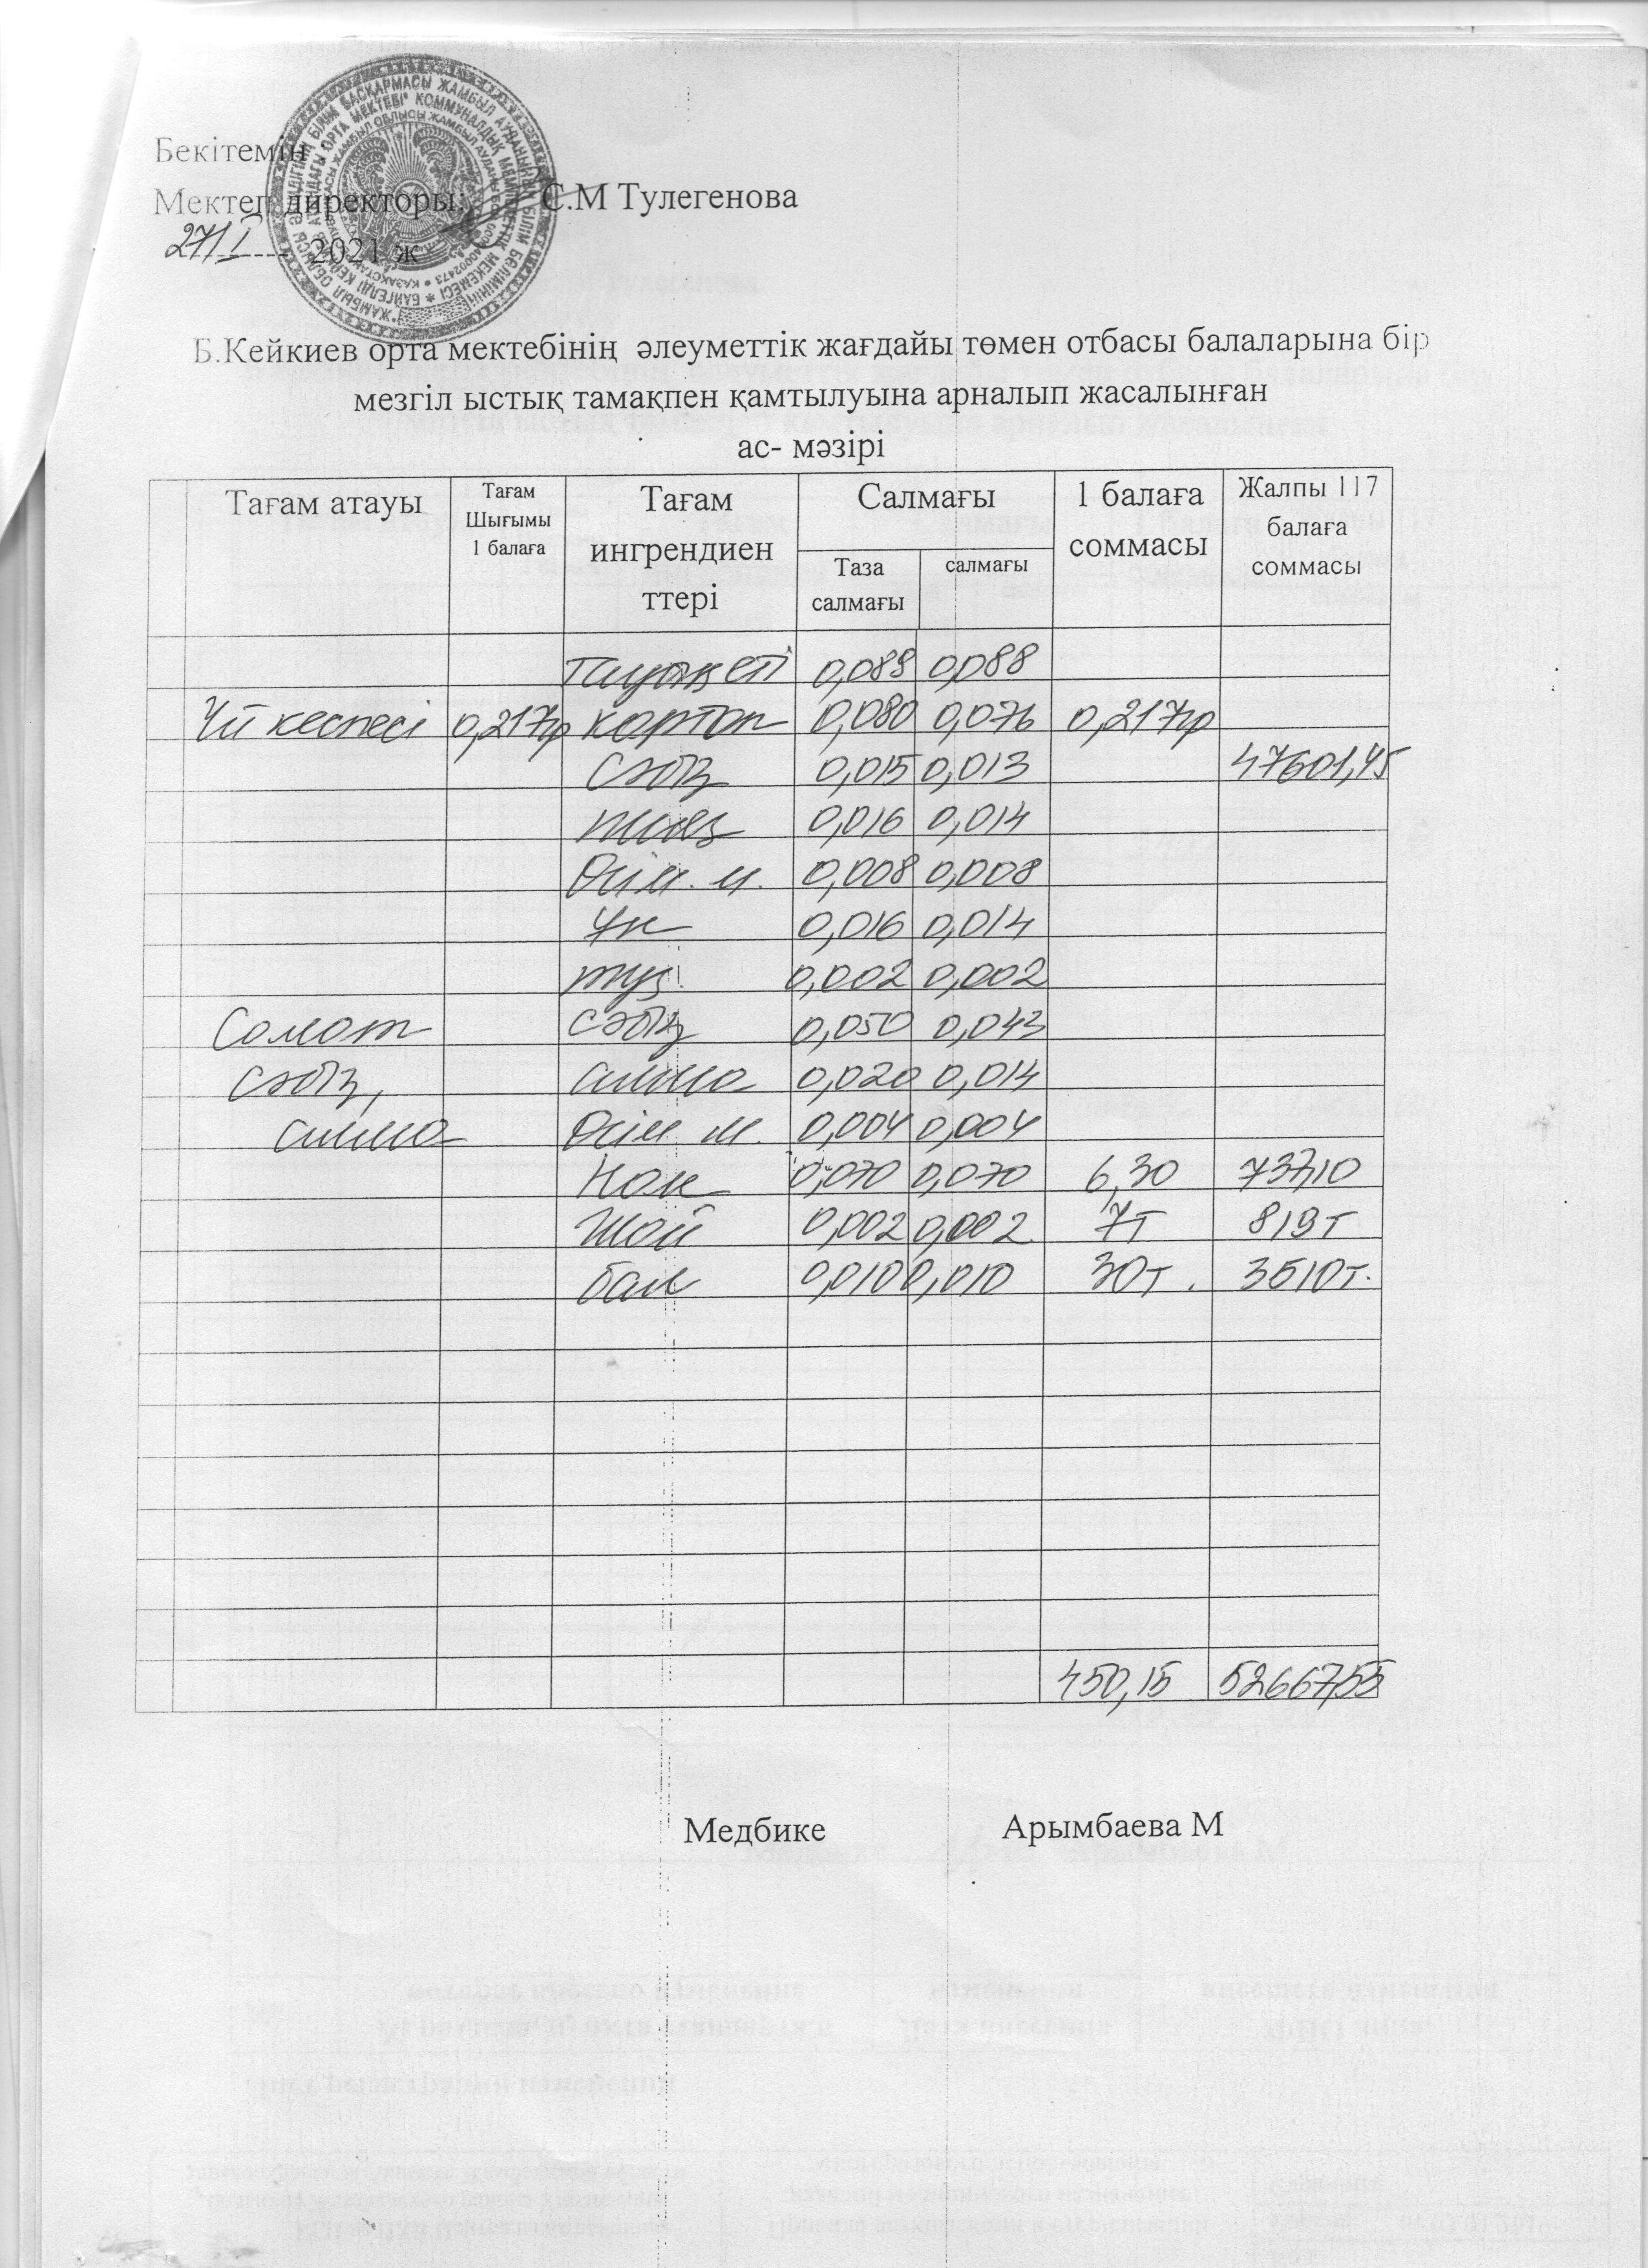 Бекітемін
Мектеп директоры: С.М Тулегенова
27/I 2021 ж
Б.Кейкиев орта мектебінің әлеуметтік жағдайы төмен отбасы балаларына бір
мезгіл ыстық тамақпен қамтылуына арналып жасалынған
ас- мәзірі
Тағам атауы Тағам Шығымы 1 балаға Тағам ингрендиен ттері Салмағы 1 балаға соммасы Жалпы 117 балаға соммасы
Таза салмағы салмағы
Тауық еті 0,089 0,088
Үй кеспесі 0,217гр картоп 0,080 0,076 0,217гр
Сәбіз 0,015 0,013 47601,45
пияз 0,016 0,014
Өсім. м. 0,008 0,008
Ұн 0,016 0,014
тұз 0,002 0,002
Салат сәбіз 0,050 0,043
сәбіз, алма 0,020 0,014
алма Өсім м. 0,004 0,004
Нан 0,070 0,070 6,30 737,10
Шай 0,002 0,002 7т 819т
бал 0,010 0,010 30т. 3510т.
450,15 52667,55
Медбике Арымбаева М